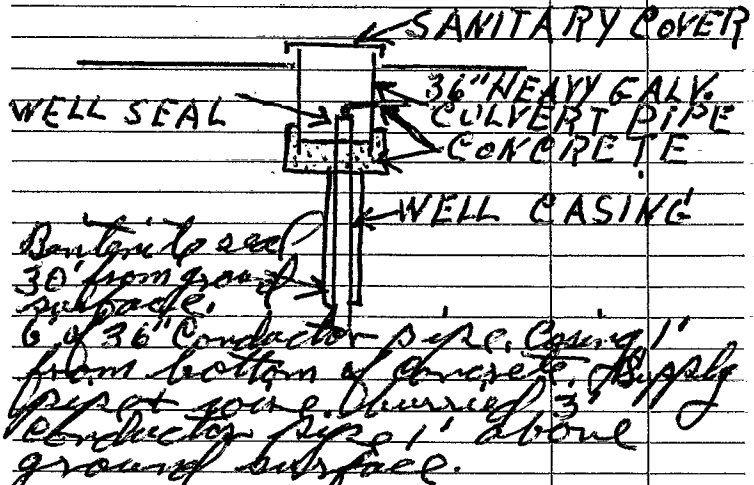 SANITARY COVER
36" HEAVY GALV.
CULVERT PIPE
WELL SEAL
CONCRETE
WELL CASING
Bentonite seal
30' from ground
surface.
6' of 36" Conductor pipe. Casing 1'
from bottom of concrete. Supply
pipe & wire burried 3'
Conductor pipe 1' above
ground surface.